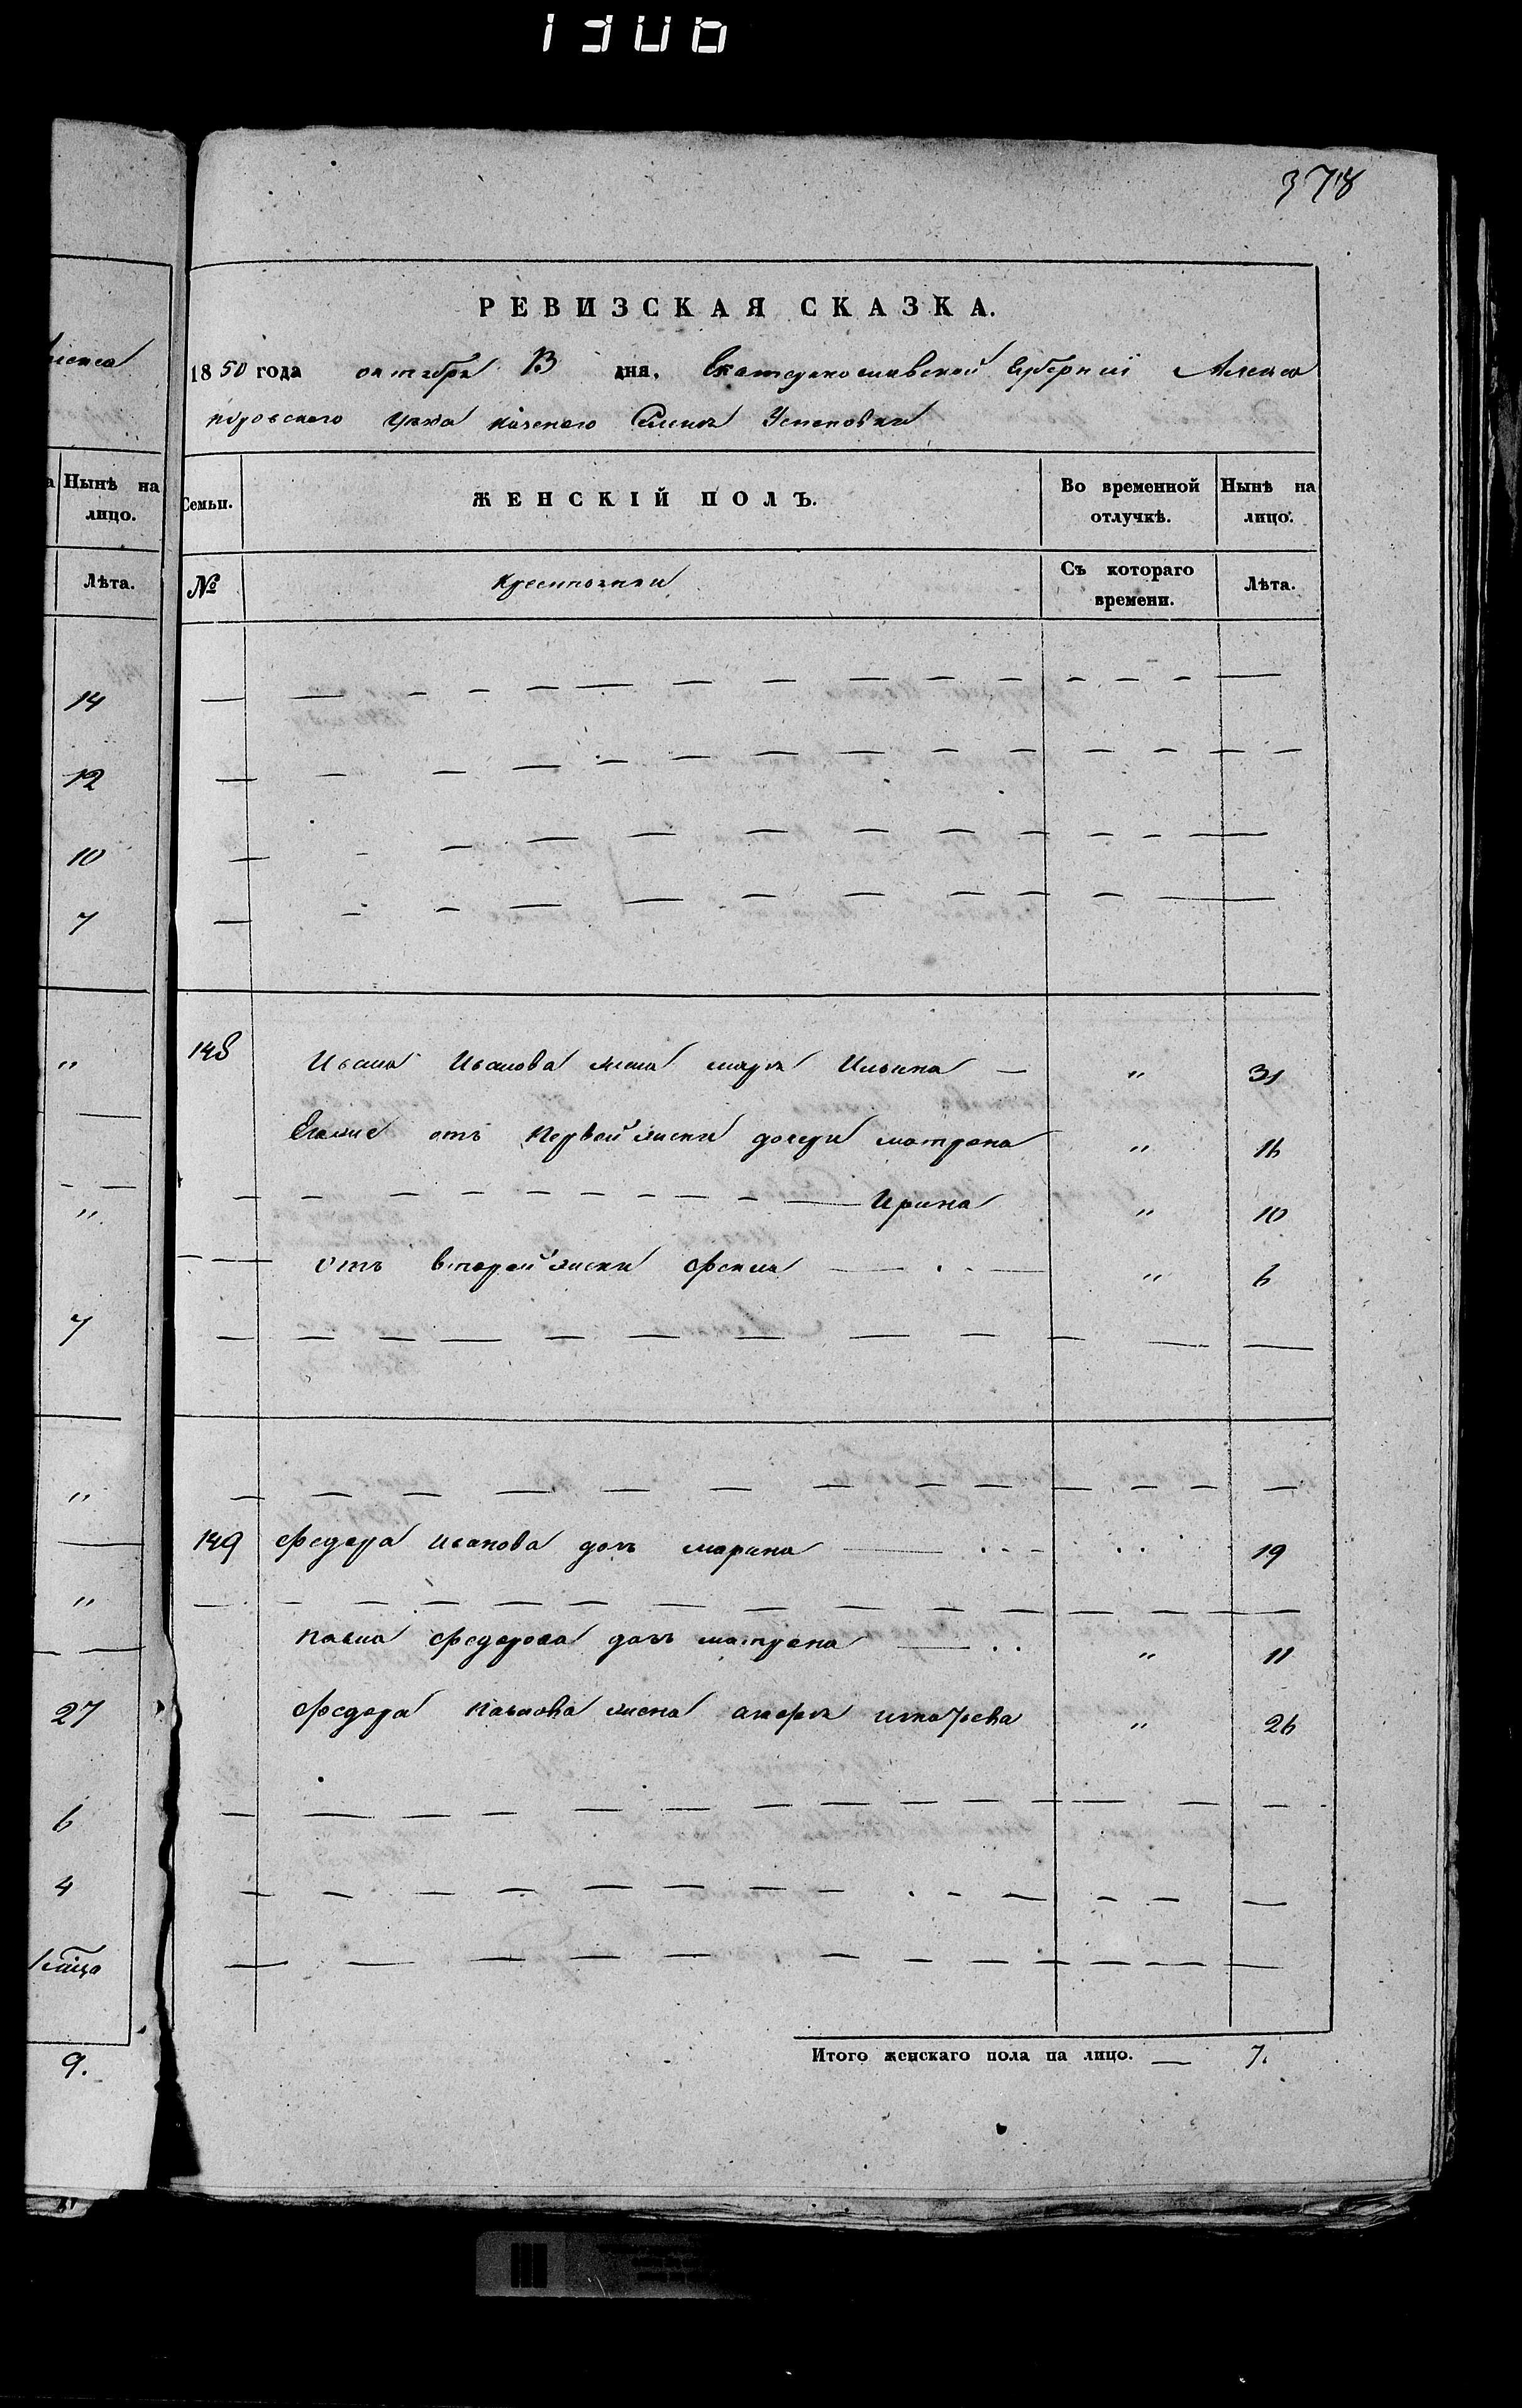 1306
378
иенса
а Нынѣ на
лицо.
Лѣта.
14
12
10
7
"
"
7
"
"
27
6
4
9.
РЕВИЗСКАЯ СКАЗКА.
1850 года октября 13 дня. Екатеринославской Губернии Алекса
ндровскаго уезда казеннаго Селения Успеновки
Семьи. ЖЕНСКІЙ ПОЛЪ. Во временной отлучкѣ. Нынѣ на лицо.
№ Крестьянки Съ котораго времени. Лѣта.
148 Ивана Иванова жена марья Ильина — " 31
Егоже отъ первой жены дочери матрена " 16
Ирина " 10
отъ второй жены Фекла — " 6
149 Федора Иванова дочь марина — 19
Павла Федорова дочь матрена — " 11
Федора Павлова жена агафья игнатьева " 26
Итого женскаго пола на лицо. — 7.